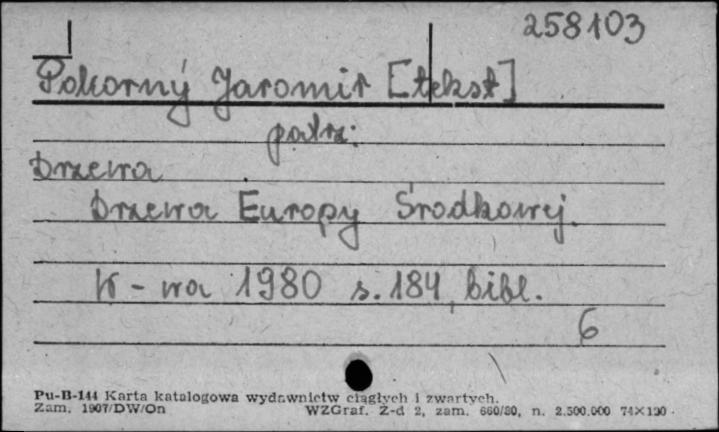 258103
Pokorný Jaromir [tekst]
patrz:
Drzewa
Drzewa Europy Środkowej.
W-wa 1980 s. 184, bibl.
6
Pu-B-144 Karta katalogowa wydawnictw ciągłych i zwartych.
Zam. 1907/DW/On WZGraf. Z-d 2, zam. 660/80, n. 2.500.000 74×130